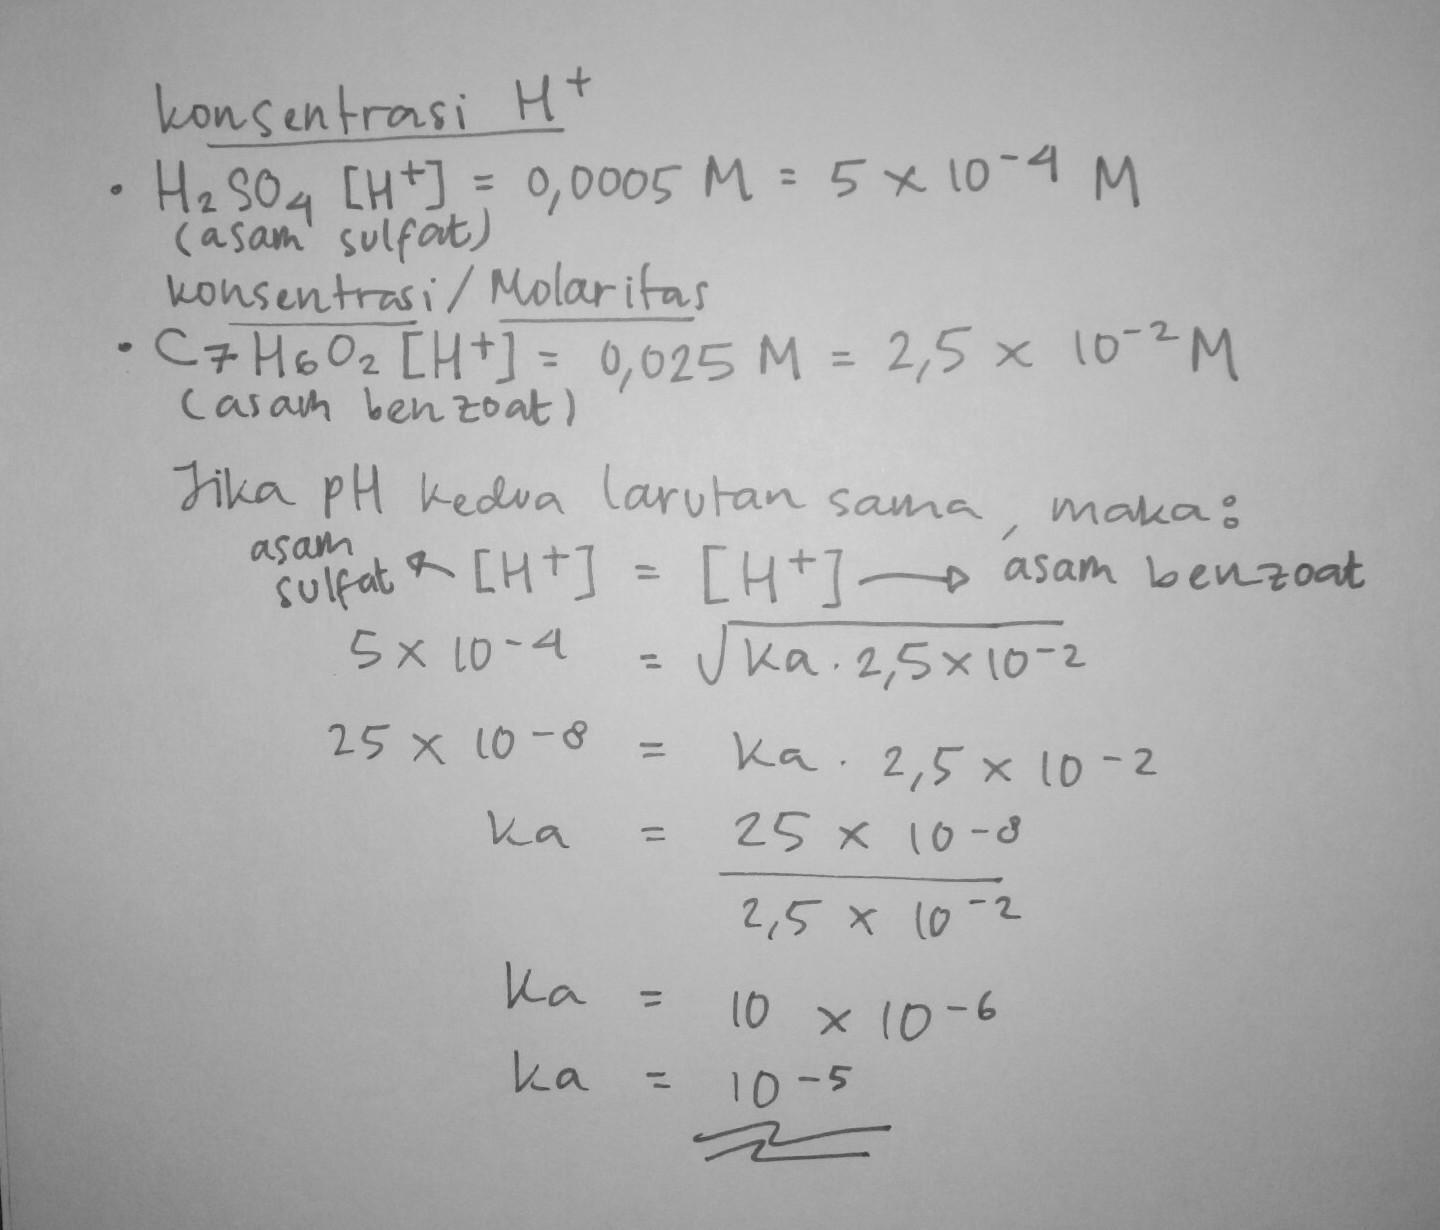 konsentrasi H⁺
• H₂SO₄ [H⁺] = 0,0005 M = 5 × 10⁻⁴ M
(asam sulfat)
konsentrasi/Molaritas
• C₇H₆O₂ [H⁺] = 0,025 M = 2,5 × 10⁻² M
(asam benzoat)
Jika pH kedua larutan sama, maka:
asam sulfat ↖ [H⁺] = [H⁺] → asam benzoat
5 × 10⁻⁴ = √Ka . 2,5 × 10⁻²
25 × 10⁻⁸ = Ka . 2,5 × 10⁻²
Ka = 25 × 10⁻⁸
2,5 × 10⁻²
Ka = 10 × 10⁻⁶
Ka = 10⁻⁵